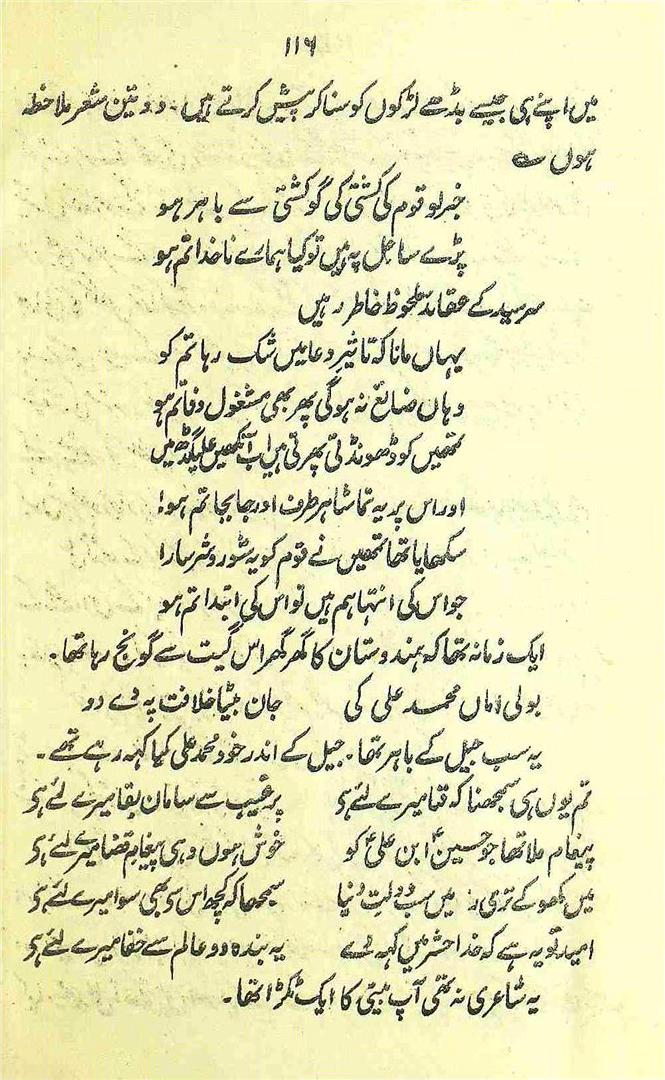 ۱۱۶
میں اپنے ہی جیسے بڈھے لڑکوں کو سنا کر پیش کرتے ہیں۔ دو تین شعر ملاحظہ
ہوں ؎
خبر لو قوم کی کشتی کی گو کشتی سے باہر ہو
پڑے ساحل پہ ہیں تو کیا ہمارے ناخدا تم ہو
سرسید کے عقائد ملحوظ خاطر رہیں
یہاں مانا کہ تاثیرِ دعا میں شک رہا تم کو
وہاں ضائع نہ ہوگی پھر بھی مشغول دفا تم ہو
تمھیں کو ڈھونڈتی پھرتی ہیں اب آنکھیں علیگڑھ میں
اور اس پر یہ تماشا ہر طرف اور جا بجا تم ہو!
سکھایا تھا تمھیں نے قوم کو یہ شور و شر سارا
جو اس کی انتہا ہم ہیں تو اس کی ابتدا تم ہو
ایک زمانہ تھا کہ ہندوستان کا گھر گھر اس گیت سے گونج رہا تھا۔
بولی اماں محمد علی کی جان بیٹا خلافت پہ دے دو
یہ سب جیل کے باہر تھا۔ جیل کے اندر خود محمد علی کیا کہہ رہے تھے۔
تم یوں ہی سمجھنا کہ فنا میرے لئے ہی پر غیب سے سامان بقا میرے لئے ہی
پیغام ملا تھا جو حسینؑ ابن علیؑ کو خوش ہوں وہی پیغامِ قضا میرے لئے ہی
میں کھو کے تری رہ میں سب دولت دنیا سمجھا کہ کچھ اس سے بھی سوا میرے لئے ہی
امید تو یہ ہے کہ خدا حشر میں کہہ دے یہ بندہ دو عالم سے خفا میرے لئے ہی
یہ شاعری نہ تھی آپ بیتی کا ایک ٹکڑا تھا۔